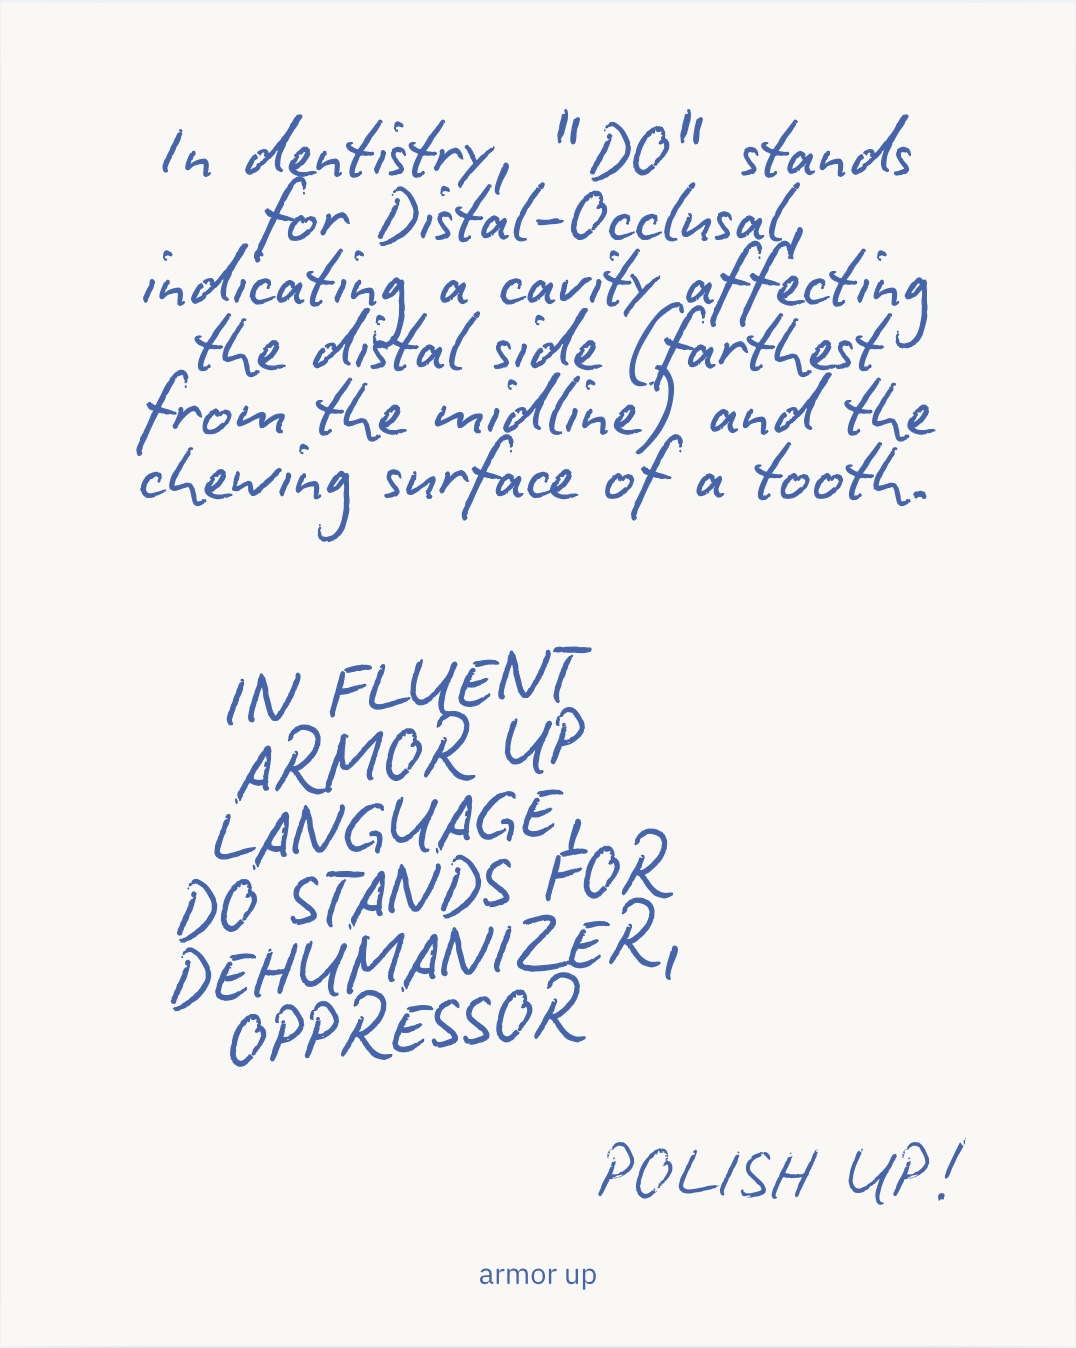 In dentistry, "DO" stands
for Distal-Occlusal,
indicating a cavity affecting
the distal side (farthest
from the midline) and the
chewing surface of a tooth.
IN FLUENT
ARMOR UP
LANGUAGE,
DO STANDS FOR
DEHUMANIZER,
OPPRESSOR
POLISH UP!
armor up